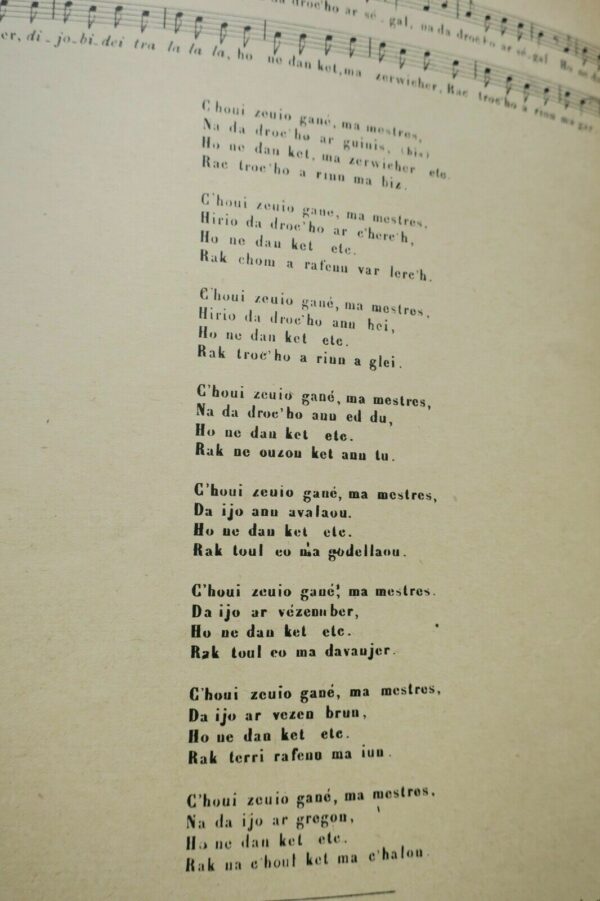 da droc'ho ar sé-gal, na da droc'ho ar sé-gal Ho ne da
er, di-jo-bi-dei tra la la la, ho ne dan ket, ma zerwicher, Rac troc'ho a rinn ma gar
C'houi zeuio gané, ma mestres,
Na da droc'ho ar guinis, (bis)
Ho ne dan ket, ma zerwicher etc.
Rac troc'ho a rinn ma biz.
C'houi zeuio gane, ma mestres,
Hirio da droc'ho ar c'herc'h,
Ho ne dan ket etc.
Rak chom a rafenn var lerc'h.
C'houi zeuio gané, ma mestres,
Hirio da droc'ho ann hei,
Ho ne dan ket etc.
Rak troc'ho a rinn a glei.
C'houi zeuio gané, ma mestres,
Na da droc'ho ann ed du,
Ho ne dan ket etc.
Rak ne ouzon ket ann tu.
C'houi zeuio gané, ma mestres,
Da ijo ann avalaou.
Ho ne dan ket etc.
Rak toul eo ma godellaou.
C'houi zeuio gané, ma mestres.
Da ijo ar vézennber,
Ho ne dan ket etc.
Rak toul eo ma davanjer.
C'houi zeuio gané, ma mestres,
Da ijo ar vezen brun,
Ho ne dan ket etc.
Rak terri rafenn ma iun.
C'houi zeuio gané, ma mestres,
Na da ijo ar gregon,
Ho ne dan ket etc.
Rak na c'houl ket ma c'halon.